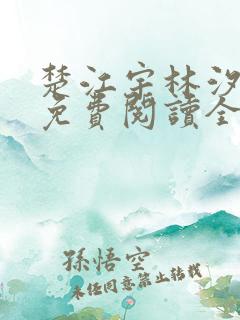 楚江宇林汐
免費閱讀全
孫悟空
未經同意禁止轉載